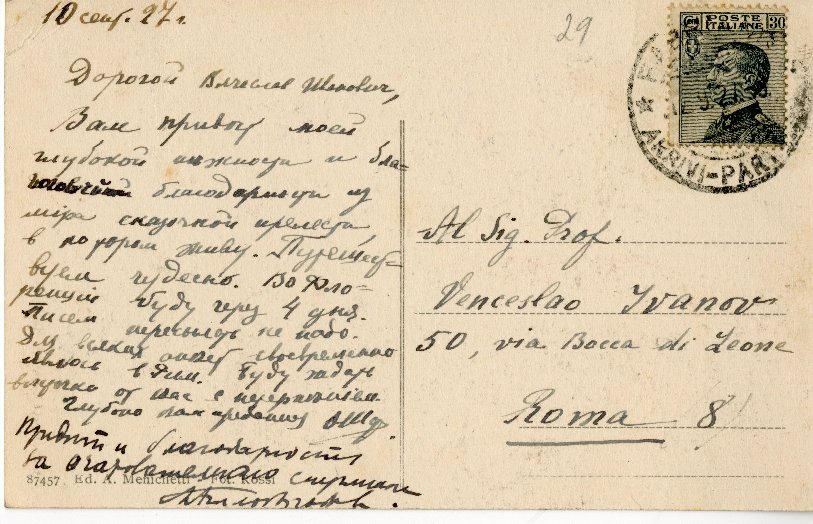 10 сент. 27 г.
29
POSTE
ITALIANE
30
ARRIVI-PAR
Дорогой Вячеслав Иванович,
Вам привет моей
глубокой нежности и бла-
благодарности из
мiра сказочной прелести,
в котором живу. Путешест-
вуем чудесно. Во Фло-
ренции буду через 4 дня.
Писем пересылать не надо.
Для всяких своевременно
явлюсь в Рим. Буду ждать
от Вас с нетерпением
Глубоко Вам преданная ОШ
Привет и благодарность
за
Al Sig. Prof.
Venceslao Ivanov
50, via Bocca di Leone
Roma 8
87457 Ed. A. Menichetti - Fot. Rossi